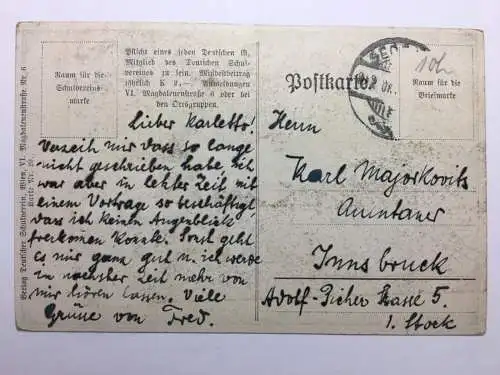 Raum für die
Schulvereins-
marke
Pflicht eines jeden Deutschen ist,
Mitglied des Deutschen Schul-
vereines zu sein. Mindestbeitrag
jährlich K 2.—. Anmeldungen
VI. Magdalenenstraße 6 oder bei
den Ortsgruppen.
Lieber Karletto!
Verzeih mir dass so lange
nicht geschrieben habe, ich
war aber in letzter Zeit mit
einem Vortrage so beschäftigt,
dass ich keinen Augenblick
freikomen konnte. Sonst geht
es mir ganz gut u. ich werde
in nächster Zeit mehr von
mir hören lassen. Viele
Grüsse von Fred.
Verlag Deutscher Schulverein, Wien, VI. Magdalenenstraße Nr. 6
Postkarte
10h
Raum für die
Briefmarke
Herrn
Karl Majorkovits
Innsbruck
Adolf-Picher Strasse 5.
1. Stock